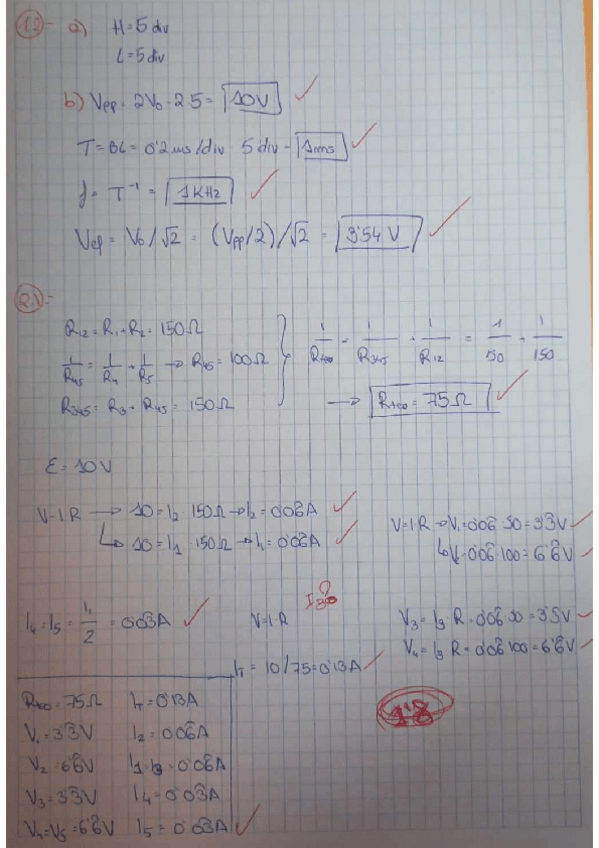 12- a) H = 5 div
L = 5 div
b) Vpp = 2V₀ = 2·5 = 10V
T = BL = 0'2 ms/div · 5 div = 1ms
f = T⁻¹ = 1KHz
Vef = V₀/√2 = (Vpp/2)/√2 = 3'54 V
2)-
R₁₂ = R₁ + R₂ = 150Ω
1/R₄₅ = 1/R₄ + 1/R₅ → R₄₅ = 100Ω
R₃₄₅ = R₃ + R₄₅ = 150Ω
1/R = 1/R₃₄₅ + 1/R₁₂ = 1/150 + 1/150
→ R = 75Ω
ε = 10V
V = I·R → 10 = I₂ · 150Ω → I₂ = 0'06A
↳ 10 = I₁ · 150Ω → I₁ = 0'06A
V = I·R → V₁ = 0'06 · 50 = 3'3V
↳ V = 0'06 · 100 = 6'6V
I₄ = I₅ = I₁/2 = 0'03A
V = I·R
?
V₃ = I₃ · R = 0'06 · 50 = 3'3V
V₄ = I₃ · R = 0'06 · 100 = 6'6V
I_T = 10/75 = 0'13A
1'8
R = 75Ω I_T = 0'13A
V₁ = 3'3V I₂ = 0'06A
V₂ = 6'6V I₁ = I₃ = 0'06A
V₃ = 3'3V I₄ = 0'03A
V₄ = V₅ = 6'6V I₅ = 0'03A